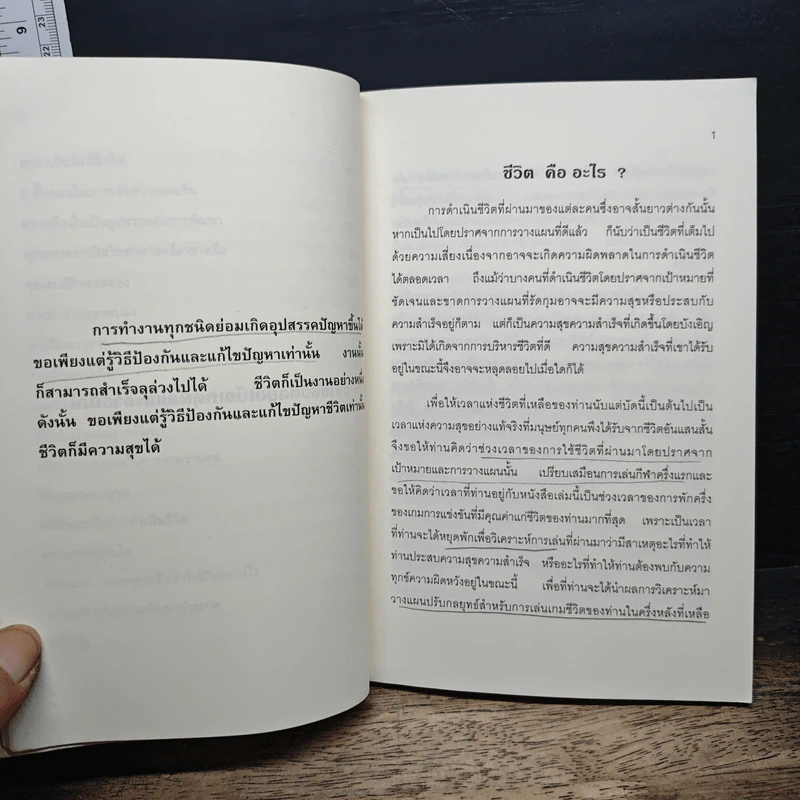 การทำงานทุกชนิดย่อมเกิดอุปสรรคปัญหาขึ้นได้
ขอเพียงแต่รู้วิธีป้องกันและแก้ไขปัญหาเท่านั้น งานนั้น
ก็สามารถสำเร็จลุล่วงไปได้ ชีวิตก็เป็นงานอย่างหนึ่ง
ดังนั้น ขอเพียงแต่รู้วิธีป้องกันและแก้ไขปัญหาชีวิตเท่านั้น
ชีวิตก็มีความสุขได้
1
ชีวิต คือ อะไร ?
การดำเนินชีวิตที่ผ่านมาของแต่ละคนซึ่งอาจสั้นยาวต่างกันนั้น
หากเป็นไปโดยปราศจากการวางแผนที่ดีแล้ว ก็นับว่าเป็นชีวิตที่เต็มไป
ด้วยความเสี่ยงเนื่องจากอาจจะเกิดความผิดพลาดในการดำเนินชีวิต
ได้ตลอดเวลา ถึงแม้ว่าบางคนที่ดำเนินชีวิตโดยปราศจากเป้าหมายที่
ชัดเจนและขาดการวางแผนที่รัดกุมอาจจะมีความสุขหรือประสบกับ
ความสำเร็จอยู่ก็ตาม แต่ก็เป็นความสุขความสำเร็จที่เกิดขึ้นโดยบังเอิญ
เพราะมิได้เกิดจากการบริหารชีวิตที่ดี ความสุขความสำเร็จที่เขาได้รับ
อยู่ในขณะนี้จึงอาจจะหลุดลอยไปเมื่อใดก็ได้
เพื่อให้เวลาแห่งชีวิตที่เหลือของท่านนับแต่บัดนี้เป็นต้นไปเป็น
เวลาแห่งความสุขอย่างแท้จริงที่มนุษย์ทุกคนพึงได้รับจากชีวิตอันแสนสั้น
จึงขอให้ท่านคิดว่าช่วงเวลาของการใช้ชีวิตที่ผ่านมาโดยปราศจาก
เป้าหมายและการวางแผนนั้น เปรียบเสมือนการเล่นกีฬาครึ่งแรกและ
ขอให้คิดว่าเวลาที่ท่านอยู่กับหนังสือเล่มนี้เป็นช่วงเวลาของการพักครึ่ง
ของเกมการแข่งขันที่มีคุณค่าแก่ชีวิตของท่านมากที่สุด เพราะเป็นเวลา
ที่ท่านจะได้หยุดพักเพื่อวิเคราะห์การเล่นที่ผ่านมาว่ามีสาเหตุอะไรที่ทำให้
ท่านประสบความสุขความสำเร็จ หรืออะไรที่ทำให้ท่านต้องพบกับความ
ทุกข์ความผิดหวังอยู่ในขณะนี้ เพื่อที่ท่านจะได้นำผลการวิเคราะห์มา
วางแผนปรับกลยุทธ์สำหรับการเล่นเกมชีวิตของท่านในครึ่งหลังที่เหลือ
9
23
22